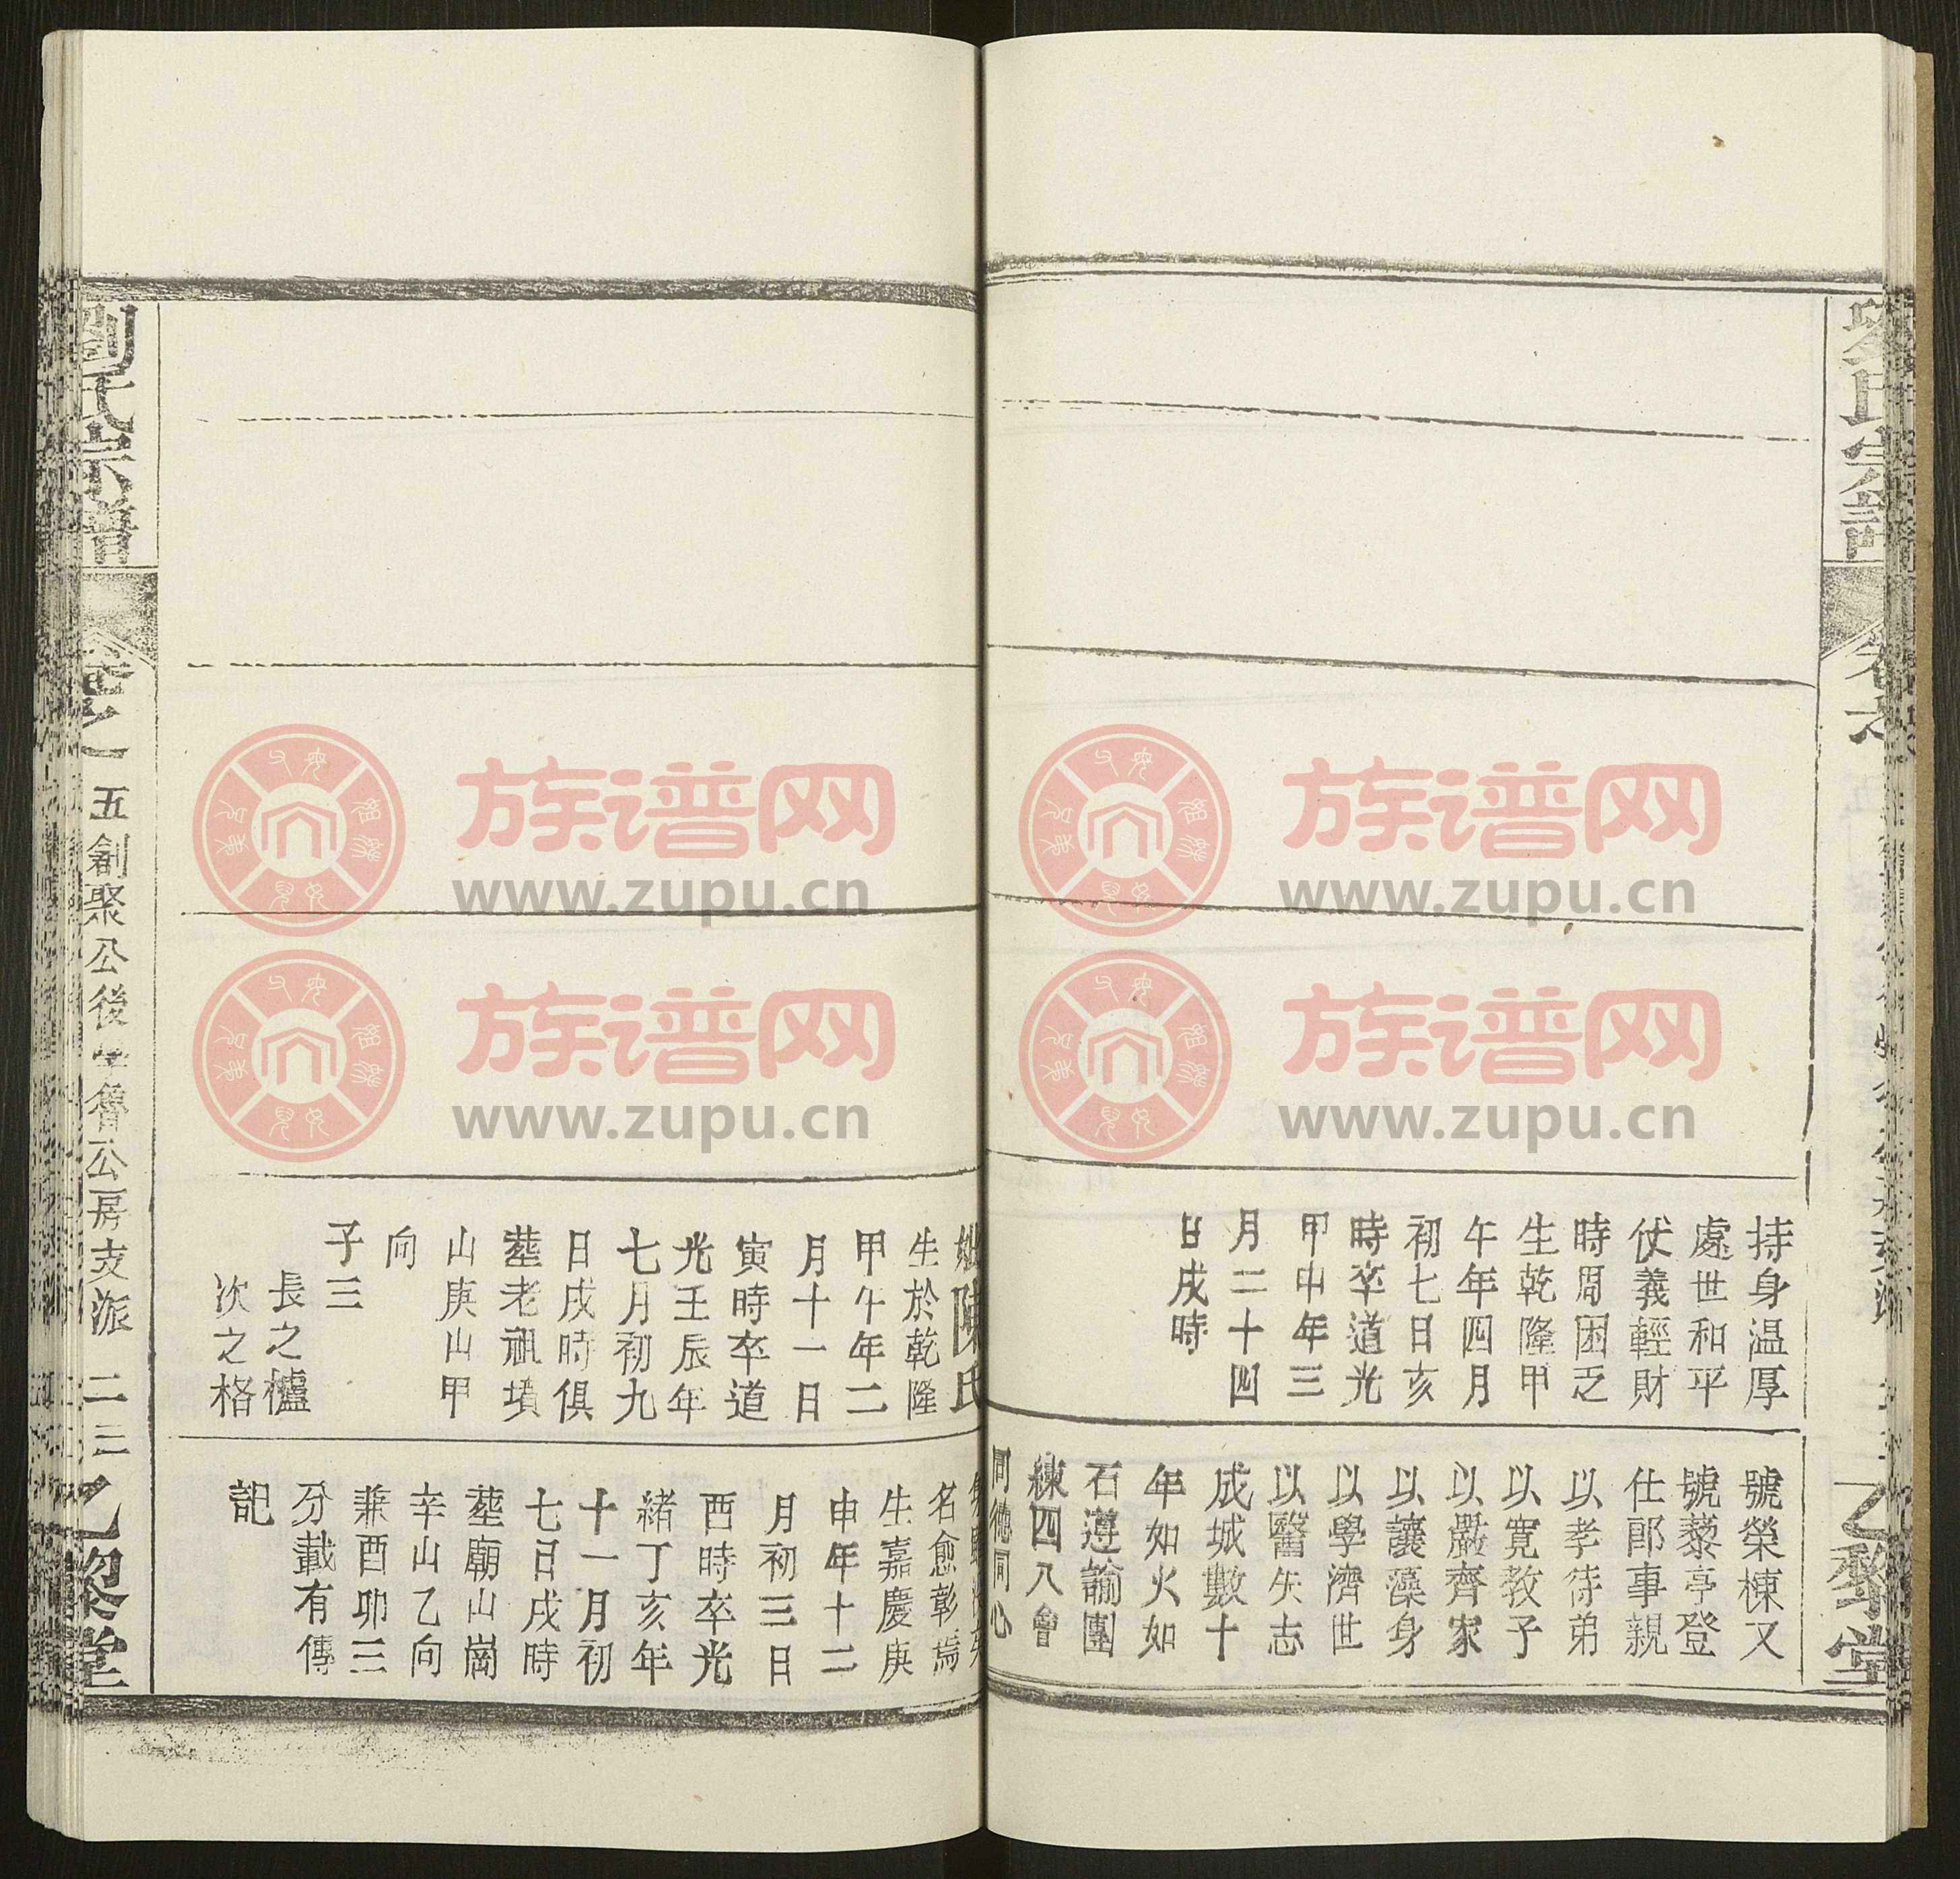 持身温厚
處世和平
仗義輕財
時周困乏
生乾隆甲
午年四月
初七日亥
時卒道光
甲申年三
月二十四
日戌時
號榮棟又
號藜亭登
仕郎事親
以孝待弟
以寛教子
以嚴齊家
以讓藻身
以學濟世
以醫矢志
成城數十
年如火如
石遵諭團
練四八會
同德同心
陳氏
生於乾隆
甲午年二
月十一日
寅時卒道
光壬辰年
七月初九
日戌時俱
塟老祖墳
山庚山甲
向
子三
長之櫨
次之格
名愈彰焉
生嘉慶庚
申年十二
月初三日
酉時卒光
緒丁亥年
十一月初
七日戌時
塟廟山崗
辛山乙向
兼酉卯三
分載有傳
記
劉氏宗譜
卷之
五創聚公後
魯公房支派
二三
乙黎堂
族谱网
www.zupu.cn
族谱网
www.zupu.cn
族谱网
www.zupu.cn
族谱网
www.zupu.cn